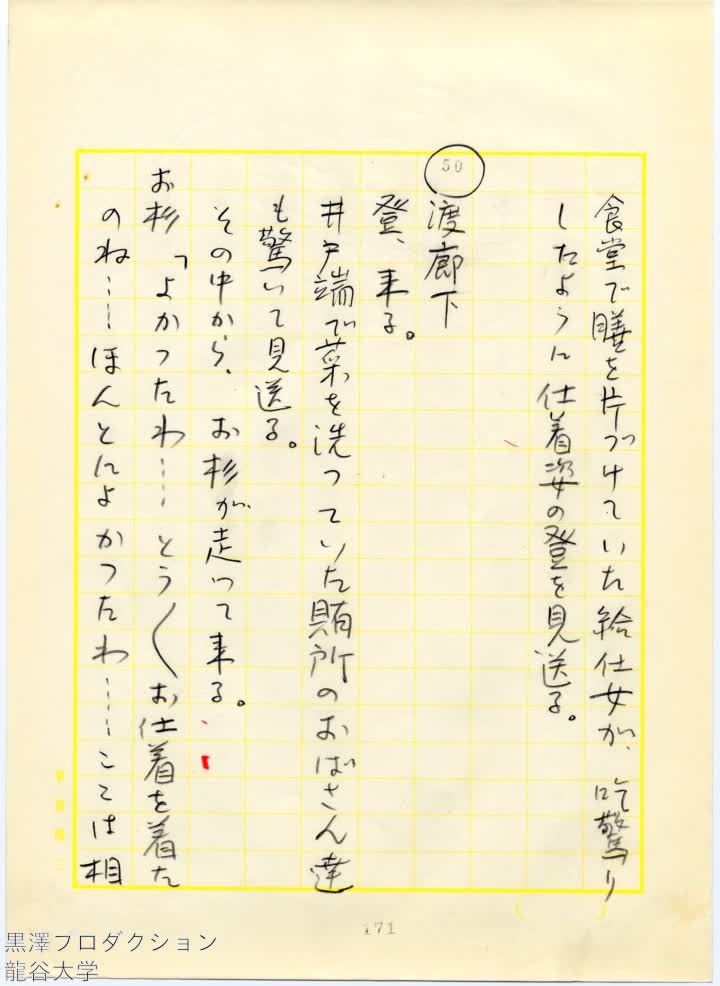 食堂で膳を片づけていた給仕女が、吃驚り
したように仕着姿の登を見送る。
50
渡廊下
登、来る。
井戸端で菜を洗つていた賄所のおばさん達
も驚いて見送る。
その中から、お杉が走つて来る。
お杉「よかつたわ……とう〱お仕着を着た
のね……ほんとによかつたわ……ここは相
171
黒澤プロダクション
龍谷大学